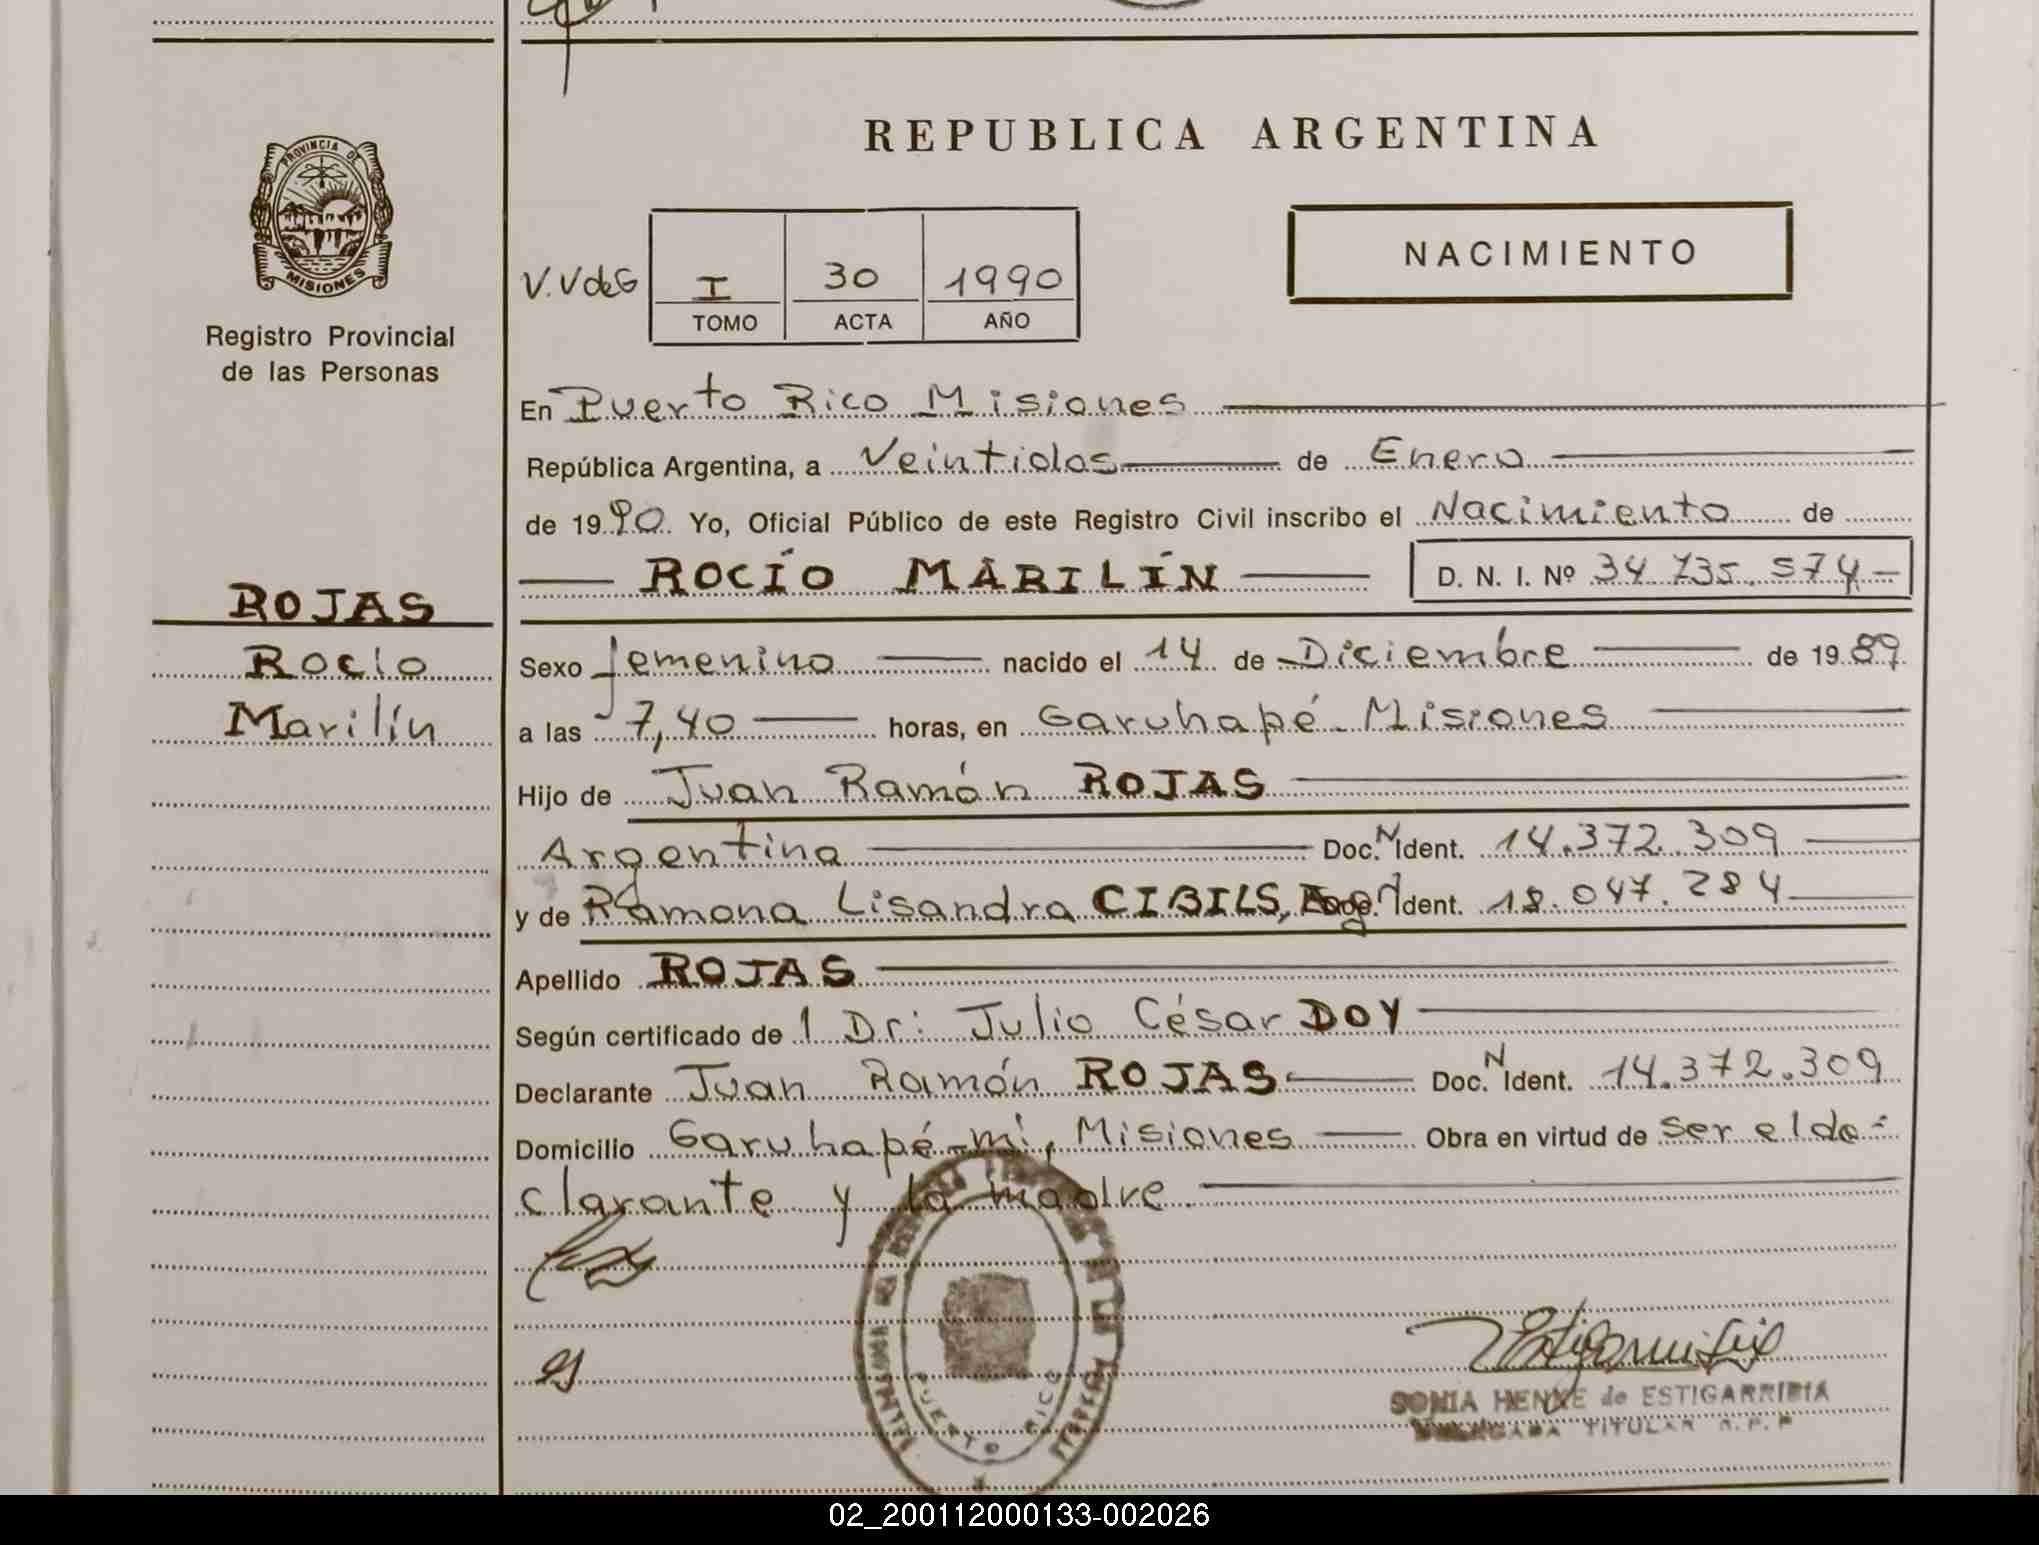 REPUBLICA ARGENTINA
PROVINCIA DE
MISIONES
Registro Provincial
de las Personas
V.V de G
I 30 1990
TOMO ACTA AÑO
NACIMIENTO
En Puerto Rico Misiones
República Argentina, a Veintidos de Enero
de 1990. Yo, Oficial Público de este Registro Civil inscribo el Nacimiento de
ROCÍO MARILÍN D. N. I. Nº 34 735.574
ROJAS
Rocío
Marilín
Sexo femenino nacido el 14 de Diciembre de 1989
a las 7,40 horas, en Garuhapé - Misiones
Hijo de Juan Ramón ROJAS
Argentina Doc. N Ident. 14.372.309
y de Ramona Lisandra CIBILS, Ident. 18.047.284
Apellido ROJAS
Según certificado de l Dr: Julio César DOY
Declarante Juan Ramón ROJAS Doc. N Ident. 14.372.309
Domicilio Garuhapé-mi, Misiones Obra en virtud de ser el de=
clarante y la madre
PUERTO RICO
SONIA HENKE de ESTIGARRIBIA
TITULAR R.P.P
02_200112000133-002026